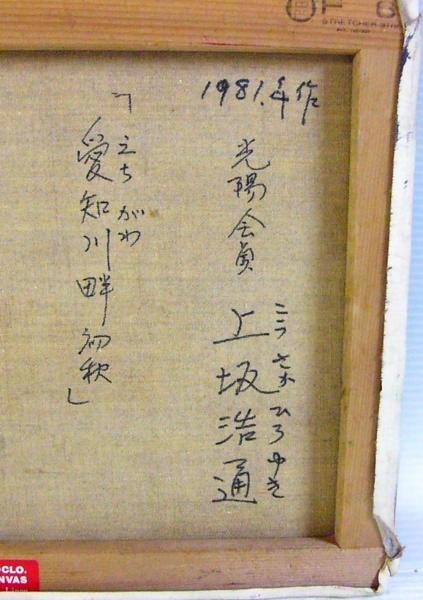 F 6
STRETCHER
1981.年作
光陽会員
上坂浩通
さかひろゆき
「愛知川畔初秋」
えちがわ
CLO.
NVAS